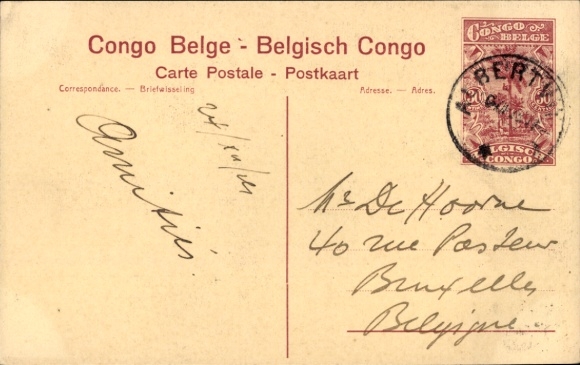 Congo Belge - Belgisch Congo
Carte Postale - Postkaart
Correspondance. — Briefwisseling
Adresse. — Adres.
CONGO BELGE
BELGISCH CONGO
ALBERTV
Amitiés.
Mr De Hoorne
40 rue Pasteur
Bruxelles
Belgique.